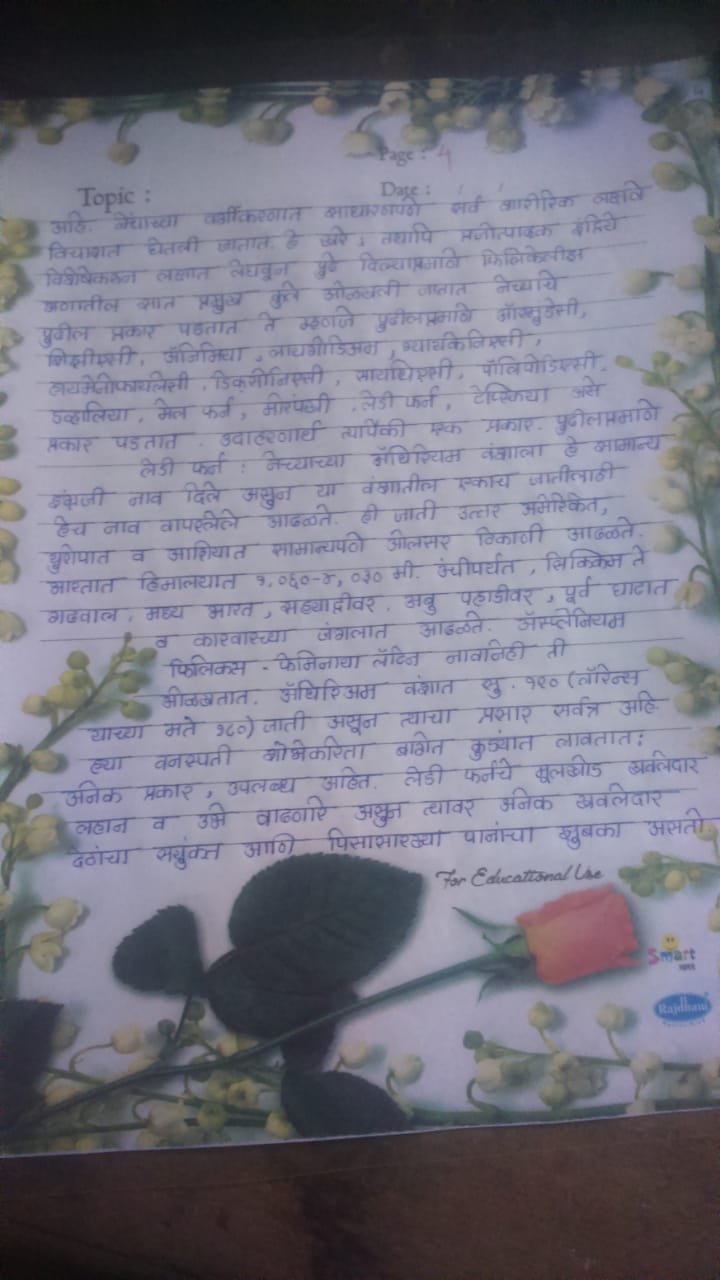 Page : 4
Topic : Date :
आहे. नेचाच्या वर्गीकरणात साधारणपणे सर्व शारीरिक लक्षणे
विचारात घेतली जातात. हे खरे ; तथापि प्रजोत्पादक इंद्रिये
विशेषेकरून लक्षात घेऊन पुढे दिल्याप्रमाणे फिलिकेलीझ
गणातील सात प्रमुख कुले ओळखली जातात नेच्याचे
पुढील प्रकार पडतात ते म्हणजे पुढीलप्रमाणे ऑस्मुंडेसी,
शिझीएसी, ॲनिमिया, लायगोडिअम, ग्लायकेनिएसी,
हायमेनोफायलेसी, डिक्सोनिएसी, सायथिएसी, पॉलिपोडिएसी,
डव्हालिया, मेल फर्न, मोरपंखी, लेडी फर्न, टेरिफिया असे
प्रकार पडतात. उदाहरणार्थ त्यापैकी एक प्रकार. पुढीलप्रमाणे
लेडी फर्न : नेच्याच्या ॲथिरियम वंशाला हे सामान्य
इंग्रजी नाव दिले असून या वंशातील एकाच जातीलाही
हेच नाव वापरलेले आढळते. ही जाती उत्तर अमेरिकेत,
युरोपात व आशियात सामान्यपणे ओलसर ठिकाणी आढळते.
भारतात हिमालयात १,०६०-४,०३० मी. उंचीपर्यंत, सिक्किम ते
गढवाल, मध्य भारत, सह्याद्रीवर, अबु पहाडीवर, पूर्व घाटात
व कारवारच्या जंगलात आढळते. ॲस्प्लेनियम
फिलिक्स - फेमिनाया लॅटिन नावानेही ती
ओळखतात. ॲथिरिअम वंशात सु. १९० (लॉरेन्स
याच्या मते १८०) जाती असून त्याचा प्रसार सर्वत्र आहे.
ह्या वनस्पती शोभेकरिता बागेत कुड्यांत लावतात;
अनेक प्रकार, उपलब्ध आहेत. लेडी फर्नचे मूलक्षोड खवलेदार
लहान व उभे वाढणारे असून त्यावर अनेक खवलेदार
देठांचा सयुंक्त आणि पिसासारख्या पानांचा झुबका असतो.
For Educational Use
Smart
Rajdhani